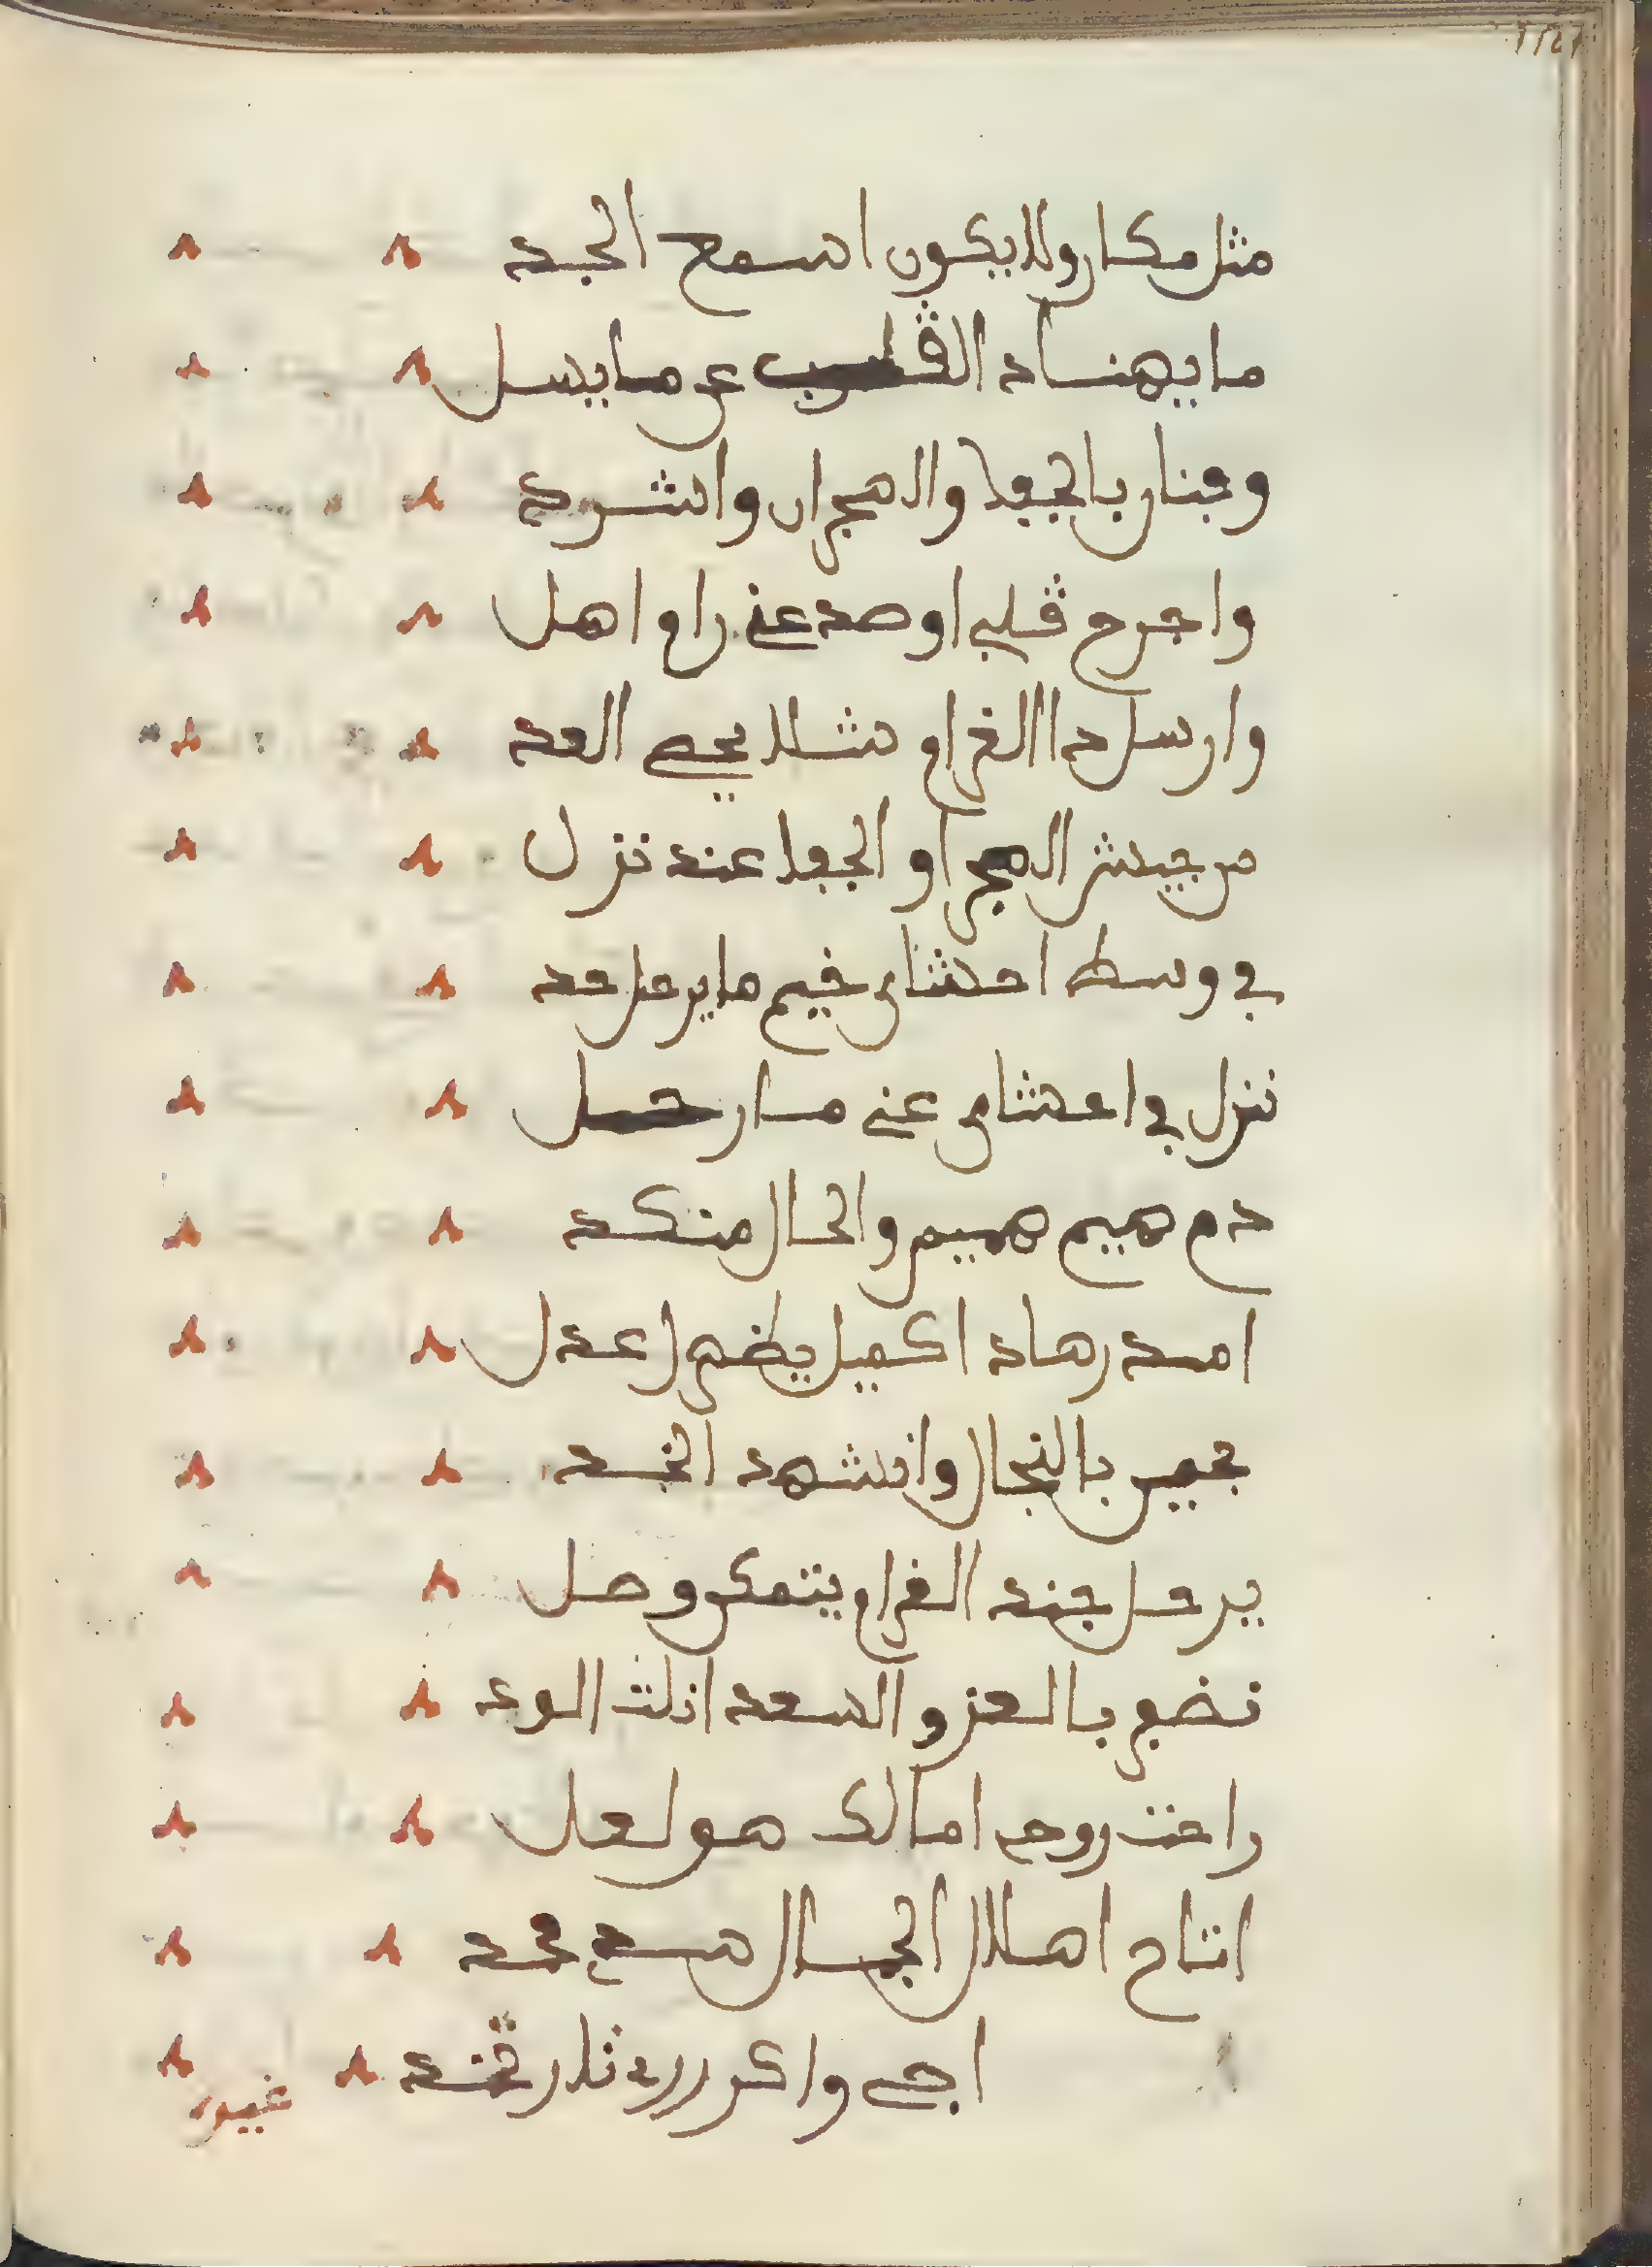 مثل مكار ولا يكون اسمع الجد
ما يهناد الڤلب عن ما يسل
وجنان بالجفا والهجران والشرد
واجرح ڤلبي اوصد عني راه اهل
وارسل دا الغرام شلا يحصي العد
من جيش الهجر او الجفا عند نزل
في وسط احشاي خيم ما يرحل حد
نزل في احشاي عني ما رحل
دم هيم هميم والحال منكد
امد رهاد اكميل يظهر ل عدل
بجبين بالنجال وانشهد الخد
يرحل جند الغرام يتمكن وصل
نضفر بالعز والسعد انلت الود
راحت روحي امالك هو لعل
انتاح اهلال الجمال سيد محمد
اجي واكر رده ندر ڤخد
غيور